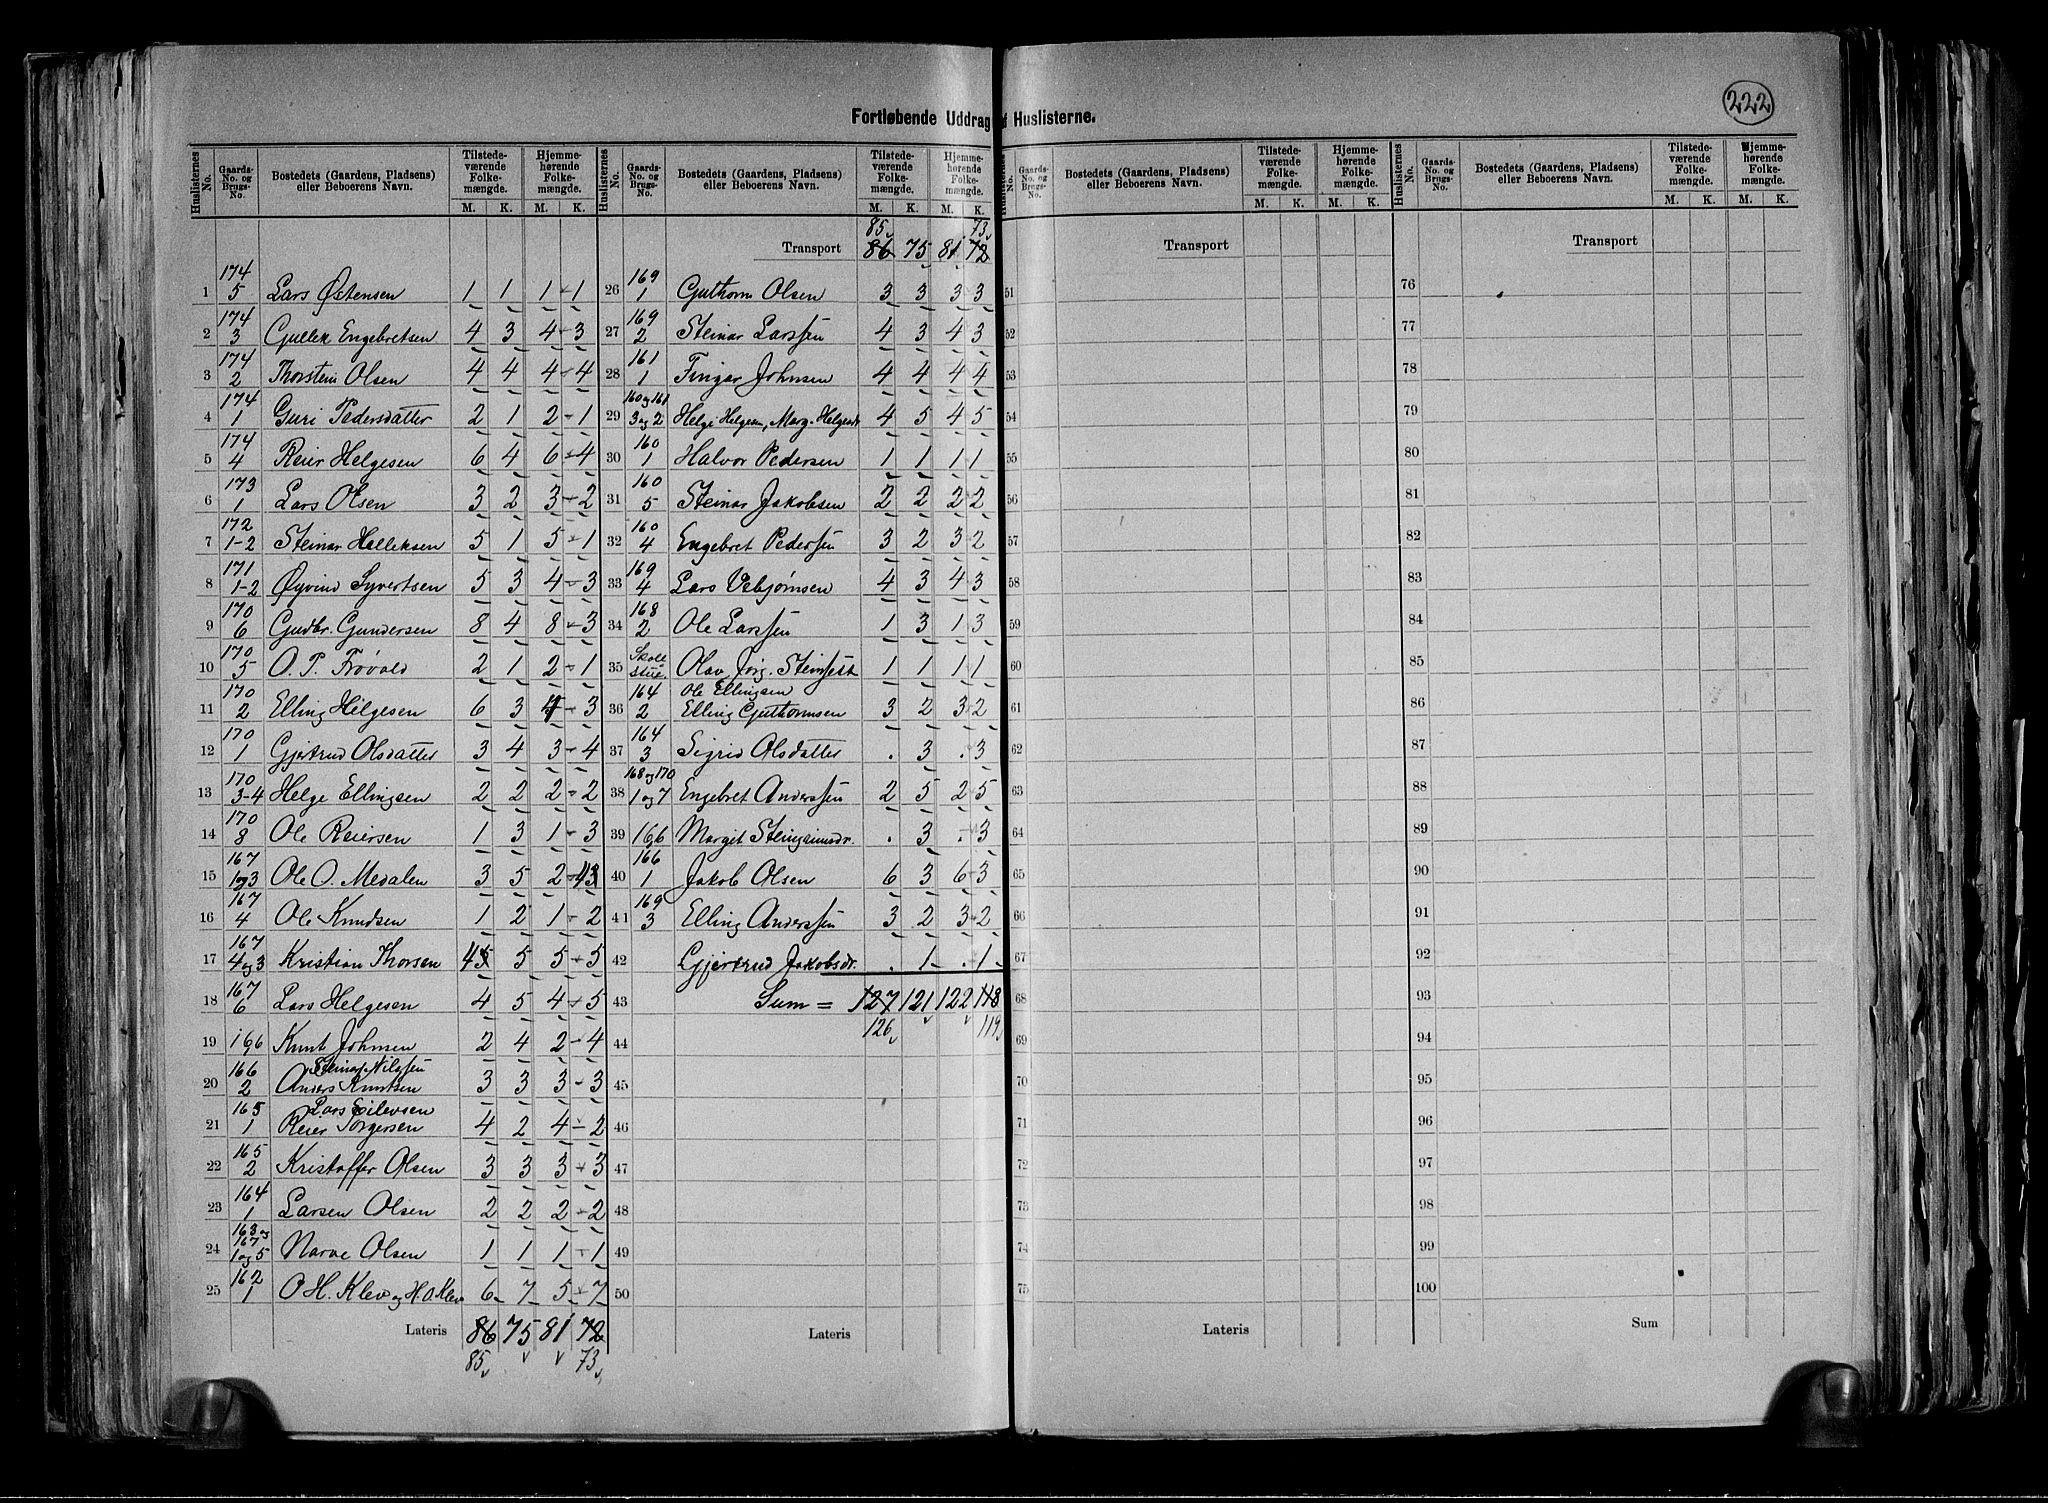 222
Fortløbende Uddrag Huslisterne.
Huslisternes No. Gaards-No. og Brugs-No. Bostedets (Gaardens, Pladsens) eller Beboerens Navn. Tilstedeværende Folkemængde. M. K. Hjemmehørende Folkemængde. M. K.
Huslisternes No. Gaards-No. og Brugs-No. Bostedets (Gaardens, Pladsens) eller Beboerens Navn. Tilstedeværende Folkemængde. M. K. Hjemmehørende Folkemængde. M. K.
Huslisternes No. Gaards-No. og Brugs-No. Bostedets (Gaardens, Pladsens) eller Beboerens Navn. Tilstedeværende Folkemængde. M. K. Hjemmehørende Folkemængde. M. K.
Huslisternes No. Gaards-No. og Brugs-No. Bostedets (Gaardens, Pladsens) eller Beboerens Navn. Tilstedeværende Folkemængde. M. K. Hjemmehørende Folkemængde. M. K.
1 174/5 Lars Østensen 1 1 1 1
2 174/3 Gullek Engebretsen 4 3 4 3
3 174/2 Thorstein Olsen 4 4 4 4
4 174/1 Guri Pedersdatter 2 1 2 1
5 174/4 Reier Helgesen 6 4 6 4
6 173/1 Lars Olsen 3 2 3 2
7 172/1-2 Steinar Halleksen 5 1 5 1
8 171/1-2 Øyvind Syvertsen 5 3 4 3
9 170/6 Gudbr. Gundersen 8 4 8 3
10 170/5 O. P. Frøvold 2 1 2 1
11 170/2 Elling Helgesen 6 3 4 3
12 170/1 Gjertrud Olsdatter 3 4 3 4
13 170/3-4 Helge Ellingsen 2 2 2 2
14 170/8 Ole Reiersen 1 3 1 3
15 167/1og3 Ole O. Medalen 3 5 2 43
16 167/4 Ole Knudsen 1 2 1 2
17 167/4og3 Kristian Thorsen 45 5 5 5
18 167/6 Lars Helgesen 4 5 4 5
19 166 Knut Johnsen 2 4 2 4
20 166/2 Steinar Nilssen
Anders Knutsen 3 3 3 3
21 165/1 Lars Eilevsen
Reier Torgersen 4 2 4 2
22 165/2 Kristoffer Olsen 3 3 3 3
23 164/1 Larsen Olsen 2 2 2 2
24 163og167/1og5 Narve Olsen 1 1 1 1
25 162/1 O H. Klev og H. O. Klev 6 7 5 7
Lateris 86 75 81 72
85 73
85 73
Transport 86 75 81 72
26 169/1 Guthorm Olsen 3 3 3 3
27 169/2 Steinar Larssen 4 3 4 3
28 161/1 Fingar Johnsen 4 4 4 4
29 160og161/3og2 Helge Helgesen, Marg. Helgesdr 4 5 4 5
30 160/1 Halvor Pedersen 1 1 1 1
31 160/5 Steinar Jakobsen 2 2 2 2
32 160/4 Engebret Pedersen 3 2 3 2
33 169/4 Lars Vebjørnsen 4 3 4 3
34 168/2 Ole Larssen 1 3 1 3
35 Skolestue. Olav Jörg. Steinsest 1 1 1 1
36 164/2 Ole Ellingsen
Elling Guthormsen 3 2 3 2
37 164/3 Sigrid Olsdatter . 3 . 3
38 168og170/1og7 Engebret Anderssen 2 5 2 5
39 166 Margit Steingrimsdr. . 3 . 3
40 166/1 Jakob Olsen 6 3 6 3
41 169/3 Elling Anderssen 3 2 3 2
42 Gjertrud Jakobsdr. . 1 . 1
43 Sum = 127 121 122 118
126 119
44
45
46
47
48
49
50
Lateris
Transport
51
52
53
54
55
56
57
58
59
60
61
62
63
64
65
66
67
68
69
70
71
72
73
74
75
Lateris
Transport
76
77
78
79
80
81
82
83
84
85
86
87
88
89
90
91
92
93
94
95
96
97
98
99
100
Sum